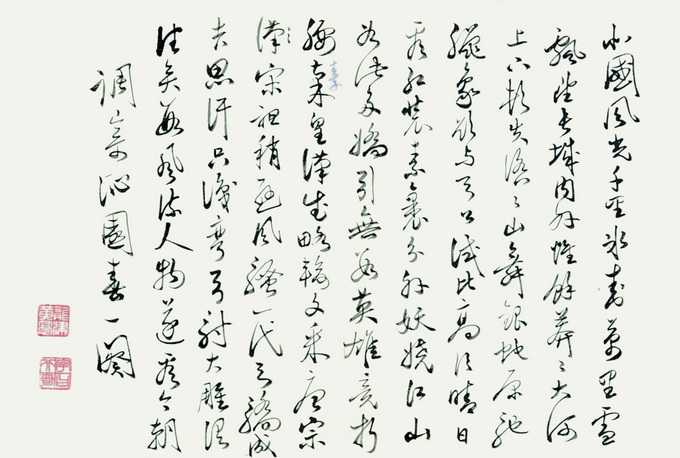 北國風光千里冰封萬里雪
飄望長城內外惟餘莽々大河
上下頓失滔々山舞銀蛇原馳
臘象欲與天公試比高須晴日
看紅裝素裹分外妖嬈江山
如此多嬌引無數英雄競折
腰秦皇漢武略輸文采唐宗
宋祖稍遜風騷一代天驕成
吉思汗只識彎弓射大雕俱
往矣數風流人物還看今朝
調寄沁園春一闋